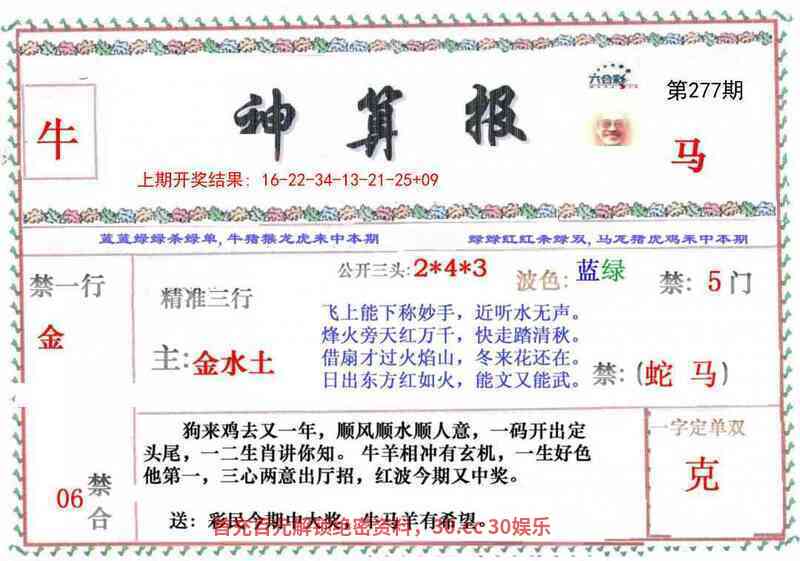 六合彩
第277期
牛
神算报
马
上期开奖结果: 16-22-34-13-21-25+09
蓝蓝绿绿条绿单,牛猪猴龙虎来中本期
绿绿红红条绿双,马龙猪虎鸡来中本期
禁一行
金
精准三行
主:金水土
公开三头:2*4*3
波色:蓝绿
禁:5门
飞上能下称妙手,近听水无声。
烽火旁天红万千,快走踏清秋。
借扇才过火焰山,冬来花还在。
日出东方红如火,能文又能武。
禁:(蛇 马)
06
禁合
狗来鸡去又一年,顺风顺水顺人意,一码开出定
头尾,一二生肖讲你知。牛羊相冲有玄机,一生好色
他第一,三心两意出厅招,红波今期又中奖。
送:彩民今期中大奖。牛马羊有希望。
首充百元解锁绝密资料,30.cc 30娱乐
一字定单双
克